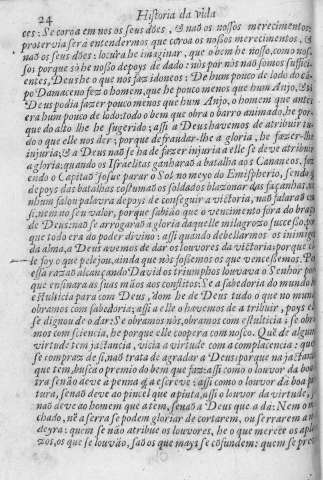 24 Historia da Vida
ces: Se coroa em nos os seus dões, & naõ os nossos merecimentos:
protervia sera entendermos que coroa os nossos merecimentos, &
naõ os seus dões: locura he imaginar, que o bem he nosso, como nos-
so: porque só he nosso depois de dado: nòs por nòs naõ somos suffici-
entes, Deus he o que nos faz idoneos: De hum pouco de lodo do
Damaceno fez o homem, que he pouco menos que hum Anjo, &
Deus podia fazer pouco menos que hum Anjo, o homem que antes
era hum pouco de lodo: todo o bem que obra o barro animado, he por-
que do alto lhe he sugerido; assi a Deus havemos de atribuir tu-
do o que elle nos der; porque defraudar-lhe a gloria, he fazer-lhe
injuria; & a Deus naõ se ha de fazer injuria a elle se deve atribuir
a gloria: quando os Israelitas ganharaõ a batalha aos Cananeos, fa-
zendo o Capitaõ Josue parar o Sol no meyo do Emispherio, sendo
depois das batalhas costumaõ os soldados blazonar das façanhas,
nhum falou palavra depois de conseguir a victoria, naõ falaraõ
si, nem no seu valor, porque sabiaõ que o vencimento fora do braço
de Deus; naõ se arrogaraõ a gloria daquelle milagroso successo,
que todo era do poder divino: assi quando debellarmos os inimigos
da alma, a Deus avemos de dar os louvores da victoria: porque
le foy o que pelejou, ainda que nòs fossemos os que vencessemos: Por
essa razaõ alcançando David os triumphos louvava o Senhor por
que ensinara as suas mãos aos conflitos: Se a sabedoria do mundo he
estulticia para com Deus, dom he de Deus tudo o que no mundo
obramos com sabedoria; assi a elle o havemos de atribuir, pois
se dignou de o dar: Se obramos nòs, obramos com estulticia; se obra-
mos com sciencia, he porque elle coopera com nosco. Quẽ de alguma
virtude tem jactancia, vicia a virtude com a complacencia: que
se compraz de si, naõ trata de agradar a Deus: porque na jactancia
que tem, busca o premio do bem que faz: assi como o louvor da boa
tra senaõ deve a penna q̃ a escreve; assi como o louvor da boa pin-
tura, senaõ deve ao pincel que a pinta, assi o louvor da virtude,
naõ deve ao homem que a tem, senaõ a Deus que a dà: Nem o
chado, nẽ a serra se podem gloriar de cortarem, ou serrarem a
deyra: quem se naõ atribue os louvores, he o que merece os aplau-
zos, os que se louvaõ, saõ os que mays se cõfundem: quem se prez